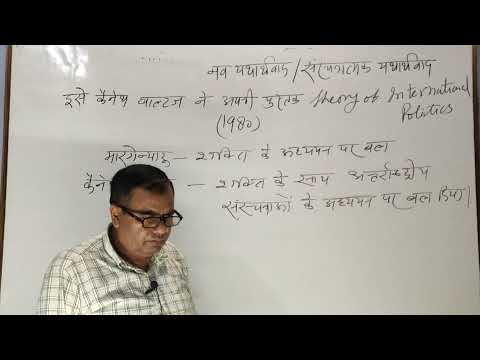 नव यथार्थवाद / संरचनात्मक यथार्थवाद
इसे कैनेथ वाल्टज ने अपनी पुस्तक Theory of International Politics
(1980)
मारगेन्थाऊ - शक्ति के अध्ययन पर बल
कैने - शक्ति के साथ अंतर्राष्ट्रीय
संरचनाओं के अध्ययन पर बल दिया।